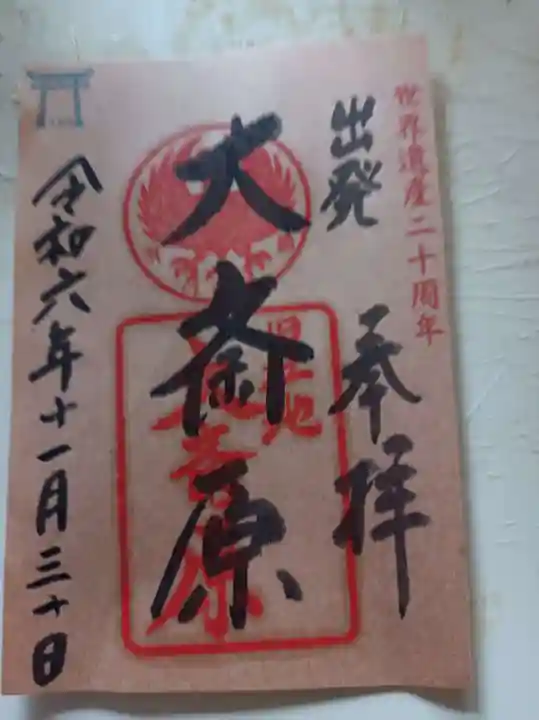 世界遺産二十周年
出発
奉拝
大斎原
旧社地
大斎原
令和六年十一月三十日